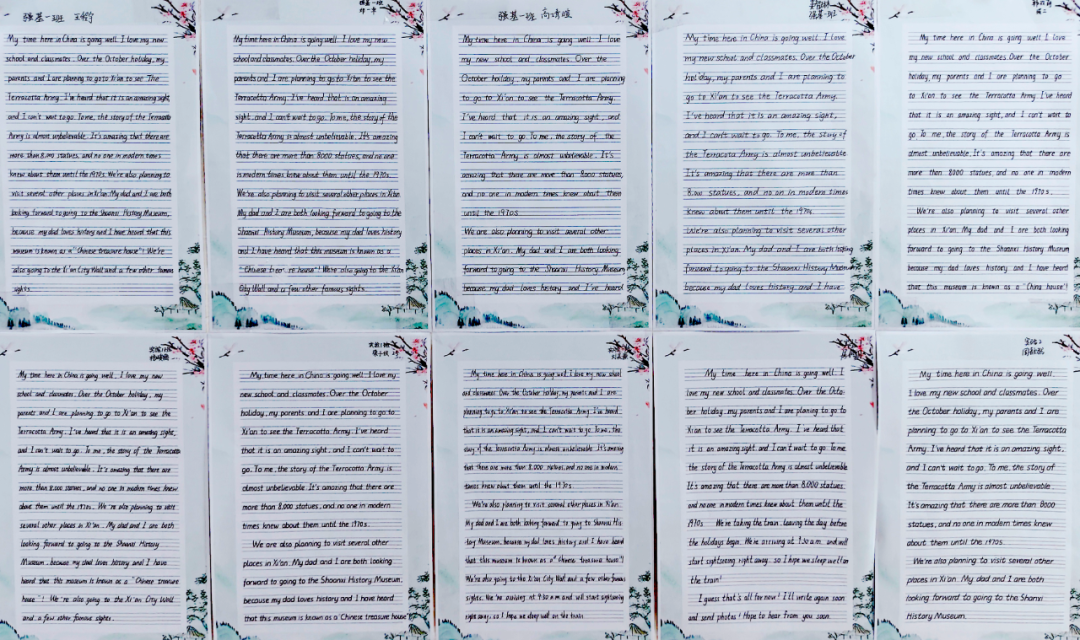 强基一班 王舒
My time here in China is going well. I love my new
school and classmates. Over the October holiday, my
parents and I are planning to go to Xi'an to see The
Terracotta Army. I've heard that it is an amazing sight
and I can't wait to go. To me, the story of the Terracotta
Army is almost unbelievable. It's amazing that there are
more than 8,000 statues, and no one in modern times
knew about them until the 1970s. We're also planning to
visit several other places in Xi'an. My dad and I are both
looking forward to going to the Shaanxi History Museum,
because my dad loves history and I have heard that this
museum is known as a "Chinese treasure house"! We're
also going to the Xi'an City Wall and a few other famous
sights.
强基一班
My time here in China is going well. I love my new
school and classmates. Over the October holiday, my
parents and I are planning to go to Xi'an to see the
Terracotta Army. I've heard that is an amazing
sight, and I can't wait to go. To me, the story of the
Terracotta Army is almost unbelievable. It's amazing
that there are more than 8000 statues, and no one
in modern times knew about them until the 1970s.
We're also planning to visit several other places in Xi'an
My dad and I are both looking forward to going to the
Shaanxi History Museum, because my dad loves history
and I have heard that this museum is known as a
"Chinese house"! We're also going to the Xi'an
City Wall and a few other famous sights.
强基一班
My time here in China is going well. I love
my new school and classmates. Over the
October holiday, my parents and I are planning
to go to Xi'an to see the Terracotta Army.
I've heard that it is an amazing sight, and
I can't wait to go. To me, the story of the
Terracotta Army is almost unbelievable. It's
amazing that there are more than 8000 statues,
and no one in modern times knew about them
until the 1970s
We are also planning to visit several other
places in Xi'an. My dad and I are both looking
forward to going to the Shaanxi History Museum
because my dad loves history and I've heard
强基一班
My time here in China is going well. I love
my new school and classmates. Over the October
holiday, my parents and I are planning to
go to Xi'an to see the Terracotta Army.
I've heard that it is an amazing sight,
and I can't wait to go. To me, the story of
the Terracotta Army is almost unbelievable
It's amazing that there are more than
8,000 statues, and no on in modern times
knew about them until the 1970s.
We're also planning to visit several other
places in Xi'an. My dad and I are both looking
forward to going to the Shaanxi History Museum
because my dad loves history and I have
My time here in China is going well. I love
my new school and classmates. Over the October
holiday, my parents and I are planning to go
to Xi'an to see the Terracotta Army. I've heard
that it is an amazing sight, and I can't wait to
go. To me, the story of the Terracotta Army is
almost unbelievable. It's amazing that there are
more than 8000 statues and no one in modern
times knew about them until the 1970s.
We're also planning to visit several other
places in Xi'an. My dad and I are both looking
forward to going to the Shaanxi History Museum
because my dad loves history and I have heard
that this museum is known as a "China house"!
My time here in China is going well. I love my new
school and classmates. Over the October holiday, my
parents and I are planning to go to Xi'an to see the
Terracotta Army. I've heard that it is an amazing sight,
and I can't wait to go. To me, the story of the Terracotta
Army is almost unbelievable. It's amazing that there are
more than 8,000 statues, and no one in modern times knew
about them until the 1970s. We're also planning to visit
several other places in Xi'an. My dad and I are both
looking forward to going to the Shaanxi History
Museum, because my dad loves history and I have
heard that this museum is known as a "Chinese treasure
house"! We're also going to the Xi'an City Wall
and a few other famous sights.
My time here in China is going well. I love my
new school and classmates. Over the October
holiday, my parents and I are planning to go to
Xi'an to see the Terracotta Army. I've heard
that it is an amazing sight, and I can't wait to
go. To me, the story of the Terracotta Army is
almost unbelievable. It's amazing that there are
more than 8,000 statues, and no one in modern
times knew about them until the 1970s.
We are also planning to visit several other
places in Xi'an. My dad and I are both looking
forward to going to the Shaanxi History Museum,
because my dad loves history and I have heard
that this museum is known as a "Chinese treasure house"
My time here in China is going well. I love my new school
and classmates. Over the October holiday, my parents and I are
planning to go to Xi'an to see the Terracotta Army. I've heard
that it is an amazing sight, and I can't wait to go. To me, the
story of the Terracotta Army is almost unbelievable. It's amazing
that there are more than 8,000 statues, and no one in modern
times knew about them until the 1970s.
We're also planning to visit several other places in Xi'an.
My dad and I are both looking forward to going to the Shaanxi His-
tory Museum, because my dad loves history and I have heard
that this museum is known as a "Chinese treasure house"!
We're also going to the Xi'an City Wall and a few other famous
sights. We're arriving at 9:30 a.m. and will start sightseeing
right away, so I hope we sleep well on the train.
My time here in China is going well. I
love my new school and classmates. Over the Octo-
ber holiday, my parents and I are planning to go to
Xi'an to see the Terracotta Army. I've heard that
it is an amazing sight and I can't wait to go. To me
the story of the Terracotta Army is almost unbelievable
It's amazing that there are more than 8,000 statues
and no one in modern times knew about them until the
1970s We're taking the train, leaving the day before
the holidays begin. We're arriving at 9:30 a.m. and will
start sightseeing right away, so I hope we sleep well on
the train!
I guess that's all for now! I'll write again soon
and send photos! Hope to hear from you soon
My time here in China is going well.
I love my new school and classmates. Over
the October holiday, my parants and I are
planning to go to Xi'an to see the Terracotta
Army. I've heard that it is an amazing sight,
and I can't wait to go. To me, the story of
the Terracotta Army is almost unbelievable.
It's amazing that there are more than 8000
statues, and no one in modern times knew
about them until the 1970s.
We're also planning to visit several other
places in Xi'an. My dad and I are both
looking forward to going to the Shanxi
History Museum.